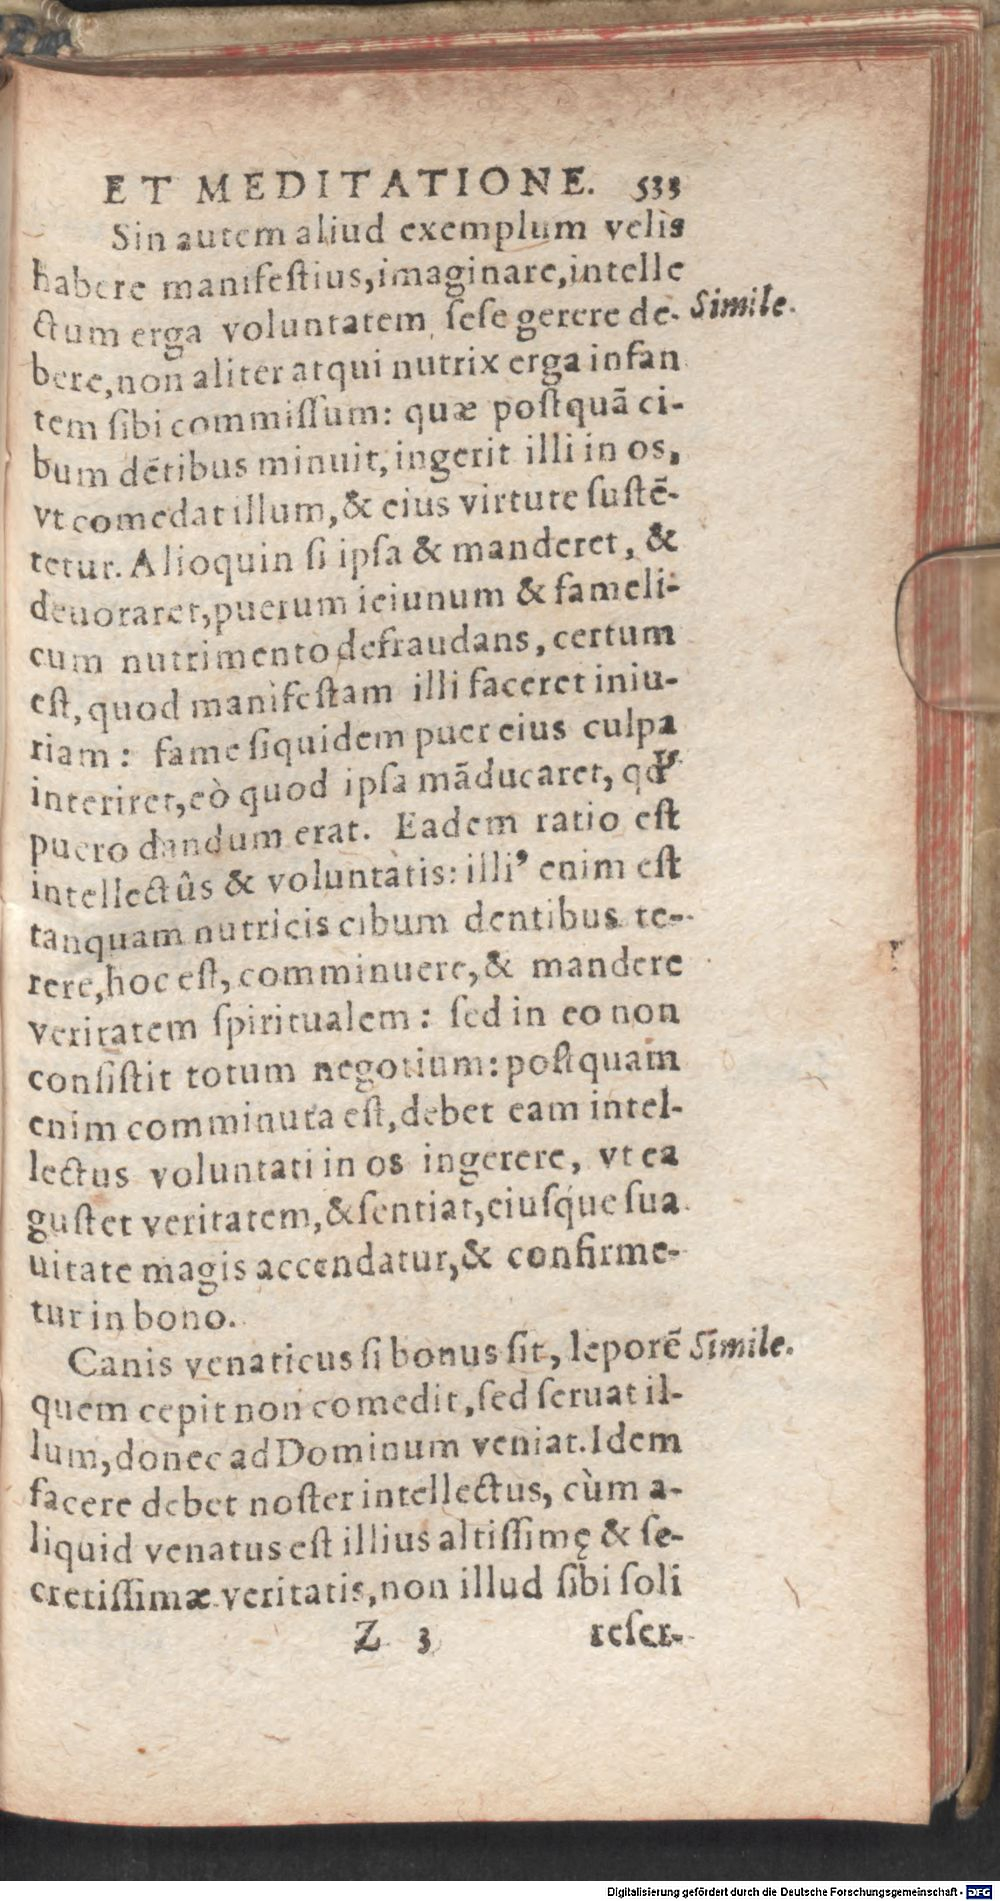 ET MEDITATIONE. 533
Sin autem aliud exemplum velis
habere manifeſtius, imaginare, intelle
ctum erga voluntatem ſeſe gerere de- Simile.
bere, non aliter atqui nutrix erga infan
tem ſibi commiſſum: quæ poſtquã ci-
bum dẽtibus minuit, ingerit illi in os,
vt comedat illum, & eius virtute ſuſtẽ-
tetur. Alioquin ſi ipſa & manderet, &
deuoraret, puerum ieiunum & fameli-
cum nutrimento defraudans, certum
eſt, quod manifeſtam illi faceret iniu-
riam: fame ſiquidem puer eius culpa
interiret, eò quod ipſa mãducaret, qđ
puero dandum erat. Eadem ratio eſt
intellectûs & voluntatis: illi⁹ enim eſt
tanquam nutricis cibum dentibus te-
rere, hoc eſt, comminuere, & mandere
veritatem ſpiritualem: ſed in eo non
conſiſtit totum negotium: poſtquam
enim comminuta eſt, debet eam intel-
lectus voluntati in os ingerere, vt ea
guſtet veritatem, & ſentiat, eiuſq́ue ſua
uitate magis accendatur, & confirme-
tur in bono.
Canis venaticus ſi bonus ſit, leporẽ Simile.
quem cepit non comedit, ſed ſeruat il-
lum, donec ad Dominum veniat. Idem
facere debet noſter intellectus, cùm a-
liquid venatus eſt illius altiſſimę & ſe-
cretiſſimæ veritatis, non illud ſibi ſoli
Z 3 reſer-
Digitalisierung gefördert durch die Deutsche Forschungsgemeinschaft - DFG